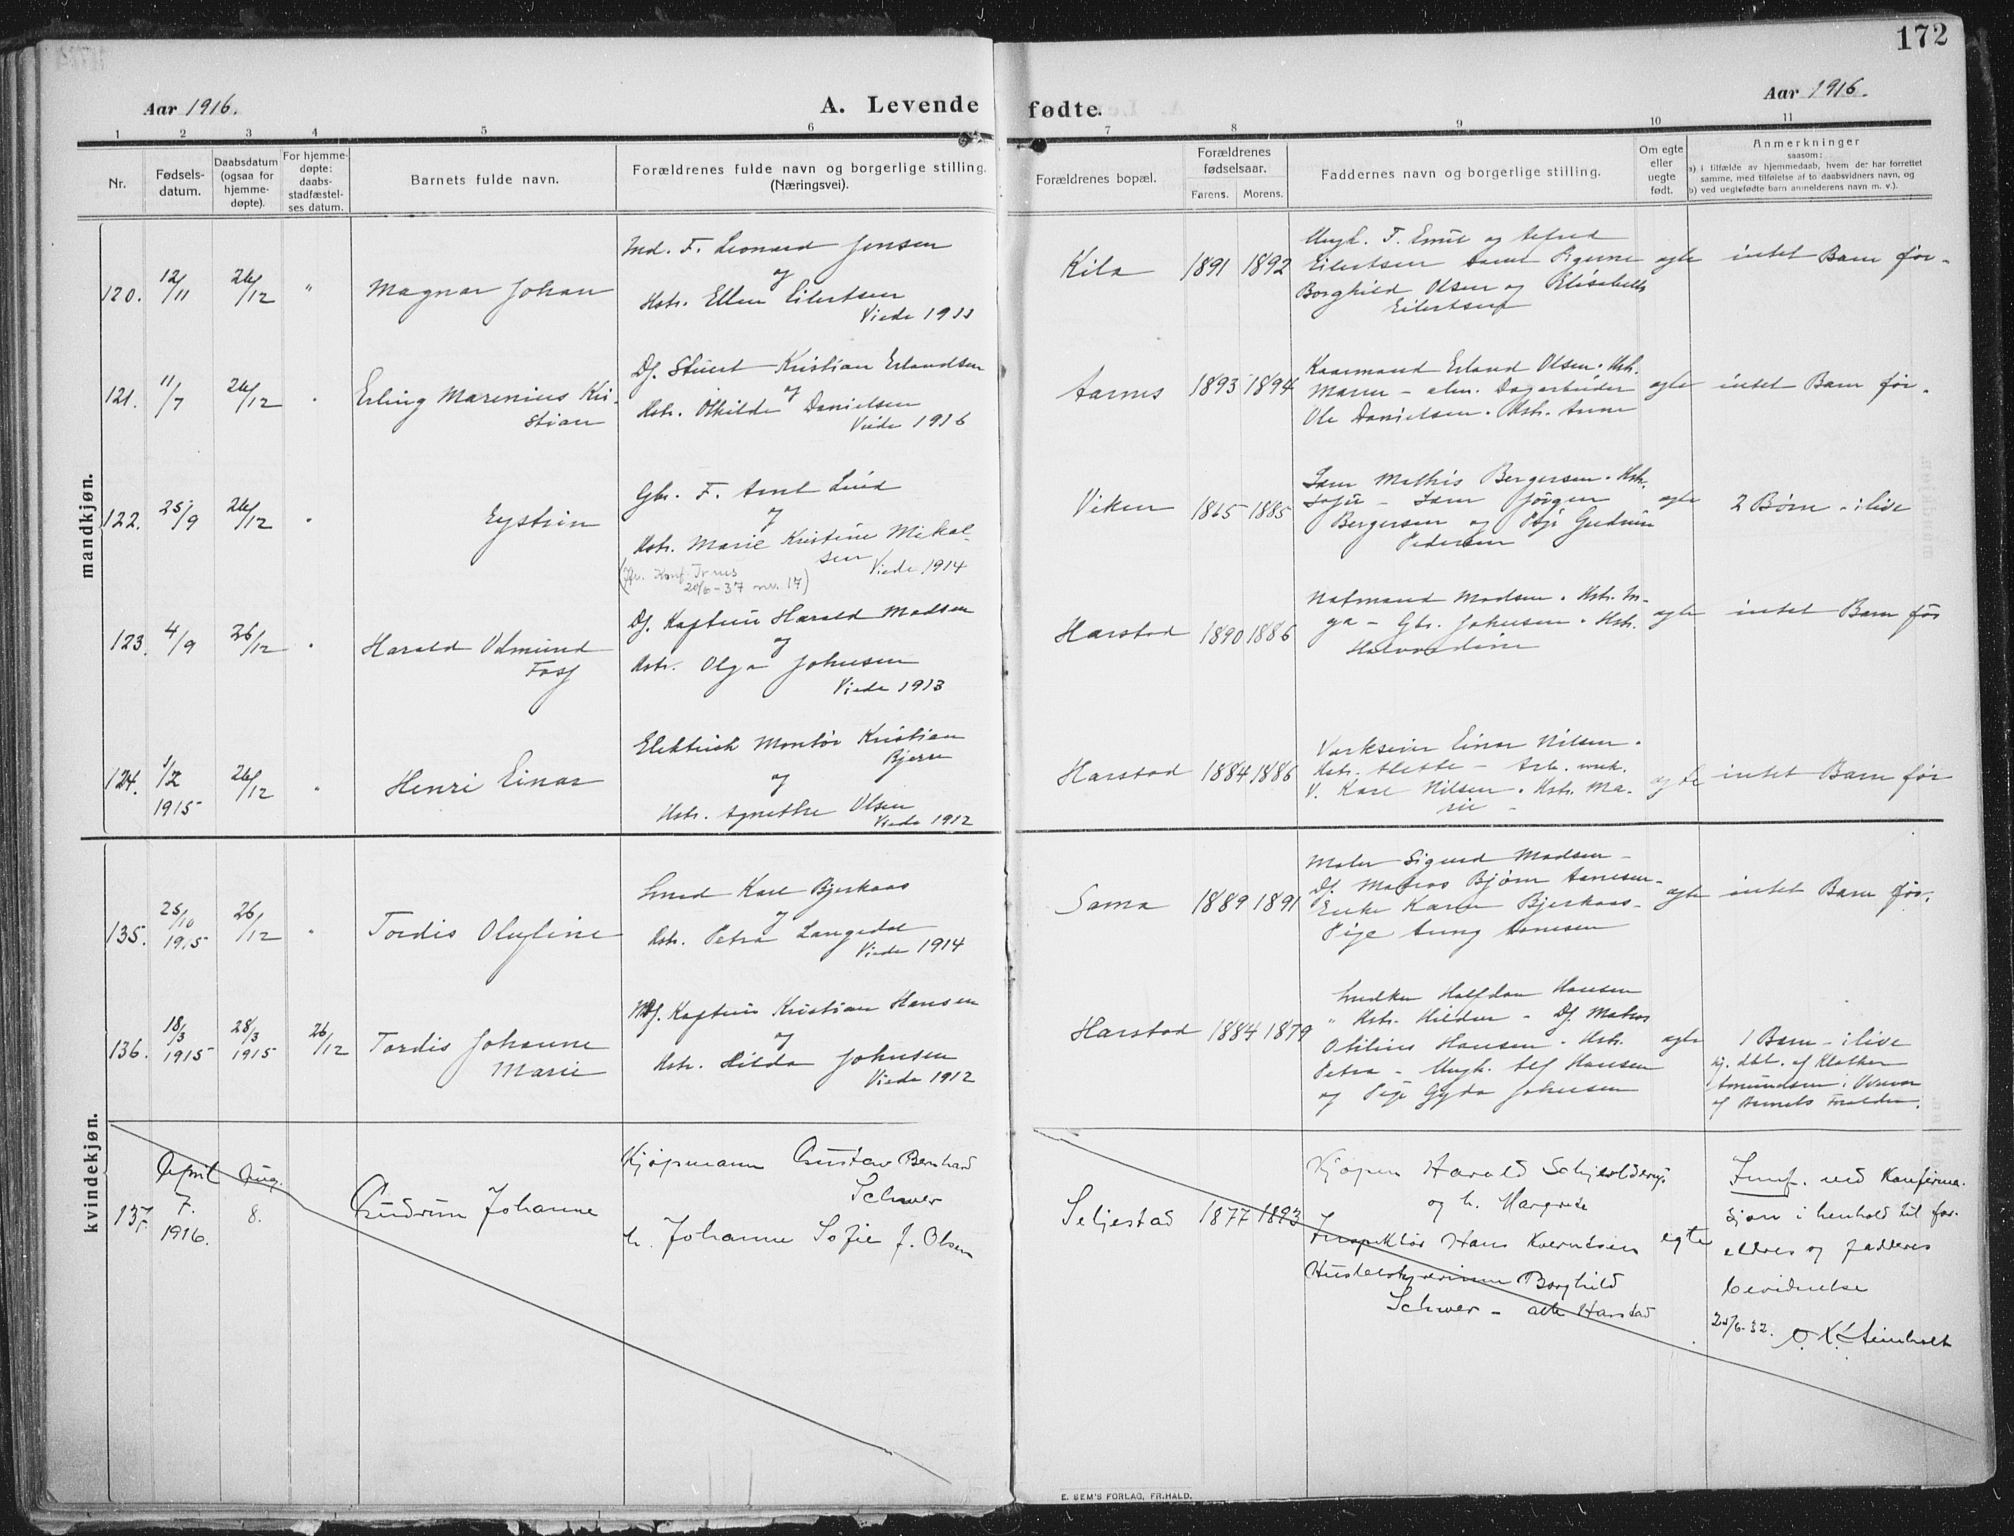 172
Aar 1916.
A. Levende fødte.
Aar 1916.
1 2 3 4 5 6 7 8 9 10 11
Nr.
Fødsels-
datum.
Daabsdatum
(ogsaa for
hjemme-
døpte).
For hjemme-
døpte:
daabs-
stadfæstel-
ses datum.
Barnets fulde navn.
Forældrenes fulde navn og borgerlige stilling.
(Næringsvei).
Forældrenes bopæl.
Forældrenes
fødselsaar.
Farens. Morens.
Faddernes navn og borgerlige stilling.
Om egte
eller
uegte
født.
Anmerkninger
saasom:
a) i tilfælde av hjemmedaab, hvem der har forrettet
samme, med tilføielse af to daabsvidners navn, og
b) ved uegtefødte barn anmelderens navn m. v.).
mandkjøn.
120. 12/11 26/12 " Magnar Johan
Ind. F. Leonard Jensen
og
Hstr. Ellen Eilertsen
Viede 1911
Kila 1891 1892
Ungk. F. Emil og Alfred
Eilertsen samt Pigerne
Borghild Olsen og Elisabeth
Eilertsen
egte intet Barn før.
121. 11/7 26/12 " Erling Marenius Kri-
stian
Df. Stuert Kristian Erlandsen
og
Hstr. Othilde Danielsen
Viede 1916
Aarnes 1893 1894
Kaarmand Erland Olsen. Hstr.
Maren - elm. Dagarbeider
Ole Danielsen. Hstr. Anne
egte intet Barn før.
122. 25/9 26/12 " Eystein
Gbr. F. Arnt Lind
og
Hstr. Marie Kristine Mikal-
sen Viede 1914
(Jfr. Konf. Trnes
20/6-37 nr. 17)
Viken 1865 1885
Mathis Bergersen. Hstr.
Sofie - Jørgen
Bergersen og Pige Gudrun
Pedersen
egte 2 Børn - i live
123. 4/9 26/12 " Harald Odmund
Foss
Df. Kaptein Harald Madsen
og
Hstr. Olga Johnsen
Viede 1913
Harstad 1890 1886
Natmand Madsen. Hstr. In-
ga - Gbr. Johnsen. Hstr.
Halvardine
egte intet Barn før
124. 1/2 1915 26/12 " Henri Einar
Elektrisk Montør Kristian
Bjerre
og
Hstr. Agnethe Olsen
Viede 1912
Harstad 1884 1886
Verkseier Einar Nilsen.
Hstr. Alette - Arb. verk.
v. Karl Nilsen. Hstr. Ma-
rie -
egte intet Barn før
kvindekjøn.
135. 25/10 1915 26/12 " Tordis Olufine
Smed Karl Bjerkaas
og
Hstr. Petra Langedal
Viede 1914
Sama 1889 1891
Maler Sigurd Madsen -
Df. Matros Bjørn Aanesen -
Enke Karen Bjerkaas -
Pige Aanesen
egte intet Barn før.
136. 18/3 1915 28/3 1915 26/12 Tordis Johanne
Marie
Df. Kaptein Kristian Hansen
og
Hstr. Hilda Johnsen
Viede 1912
Harstad 1884 1879
Halfdan Hansen
" Hstr. - Df. Matros
Otilius Hansen. Hstr.
Petra - Ungk. Alf Hansen
og Pige Gyda Johnsen
egte 1 Barn - i live
hj. dbt. af Klokker
Amundsen i
af Barnets Forældre.
137. April 7. 1916. Aug. 8. Gudrun Johanne
Kjøpmann Gustav Bernhard
Schwer
h. Johanne Sofie f. Olsen
Seljestad 1877 1893
Kjøpm Harald Schjelderup
og h. Margrete
Inspektør Hans Kverndsen
Borghild
Schwer - alle Harstad
egte
Innf. ved Konfirma-
sjon i henhold til for-
eldres og fadderes
bevidnelse
25/6-32. O. K. Steinholt
E. SEM'S FORLAG, FR.HALD.